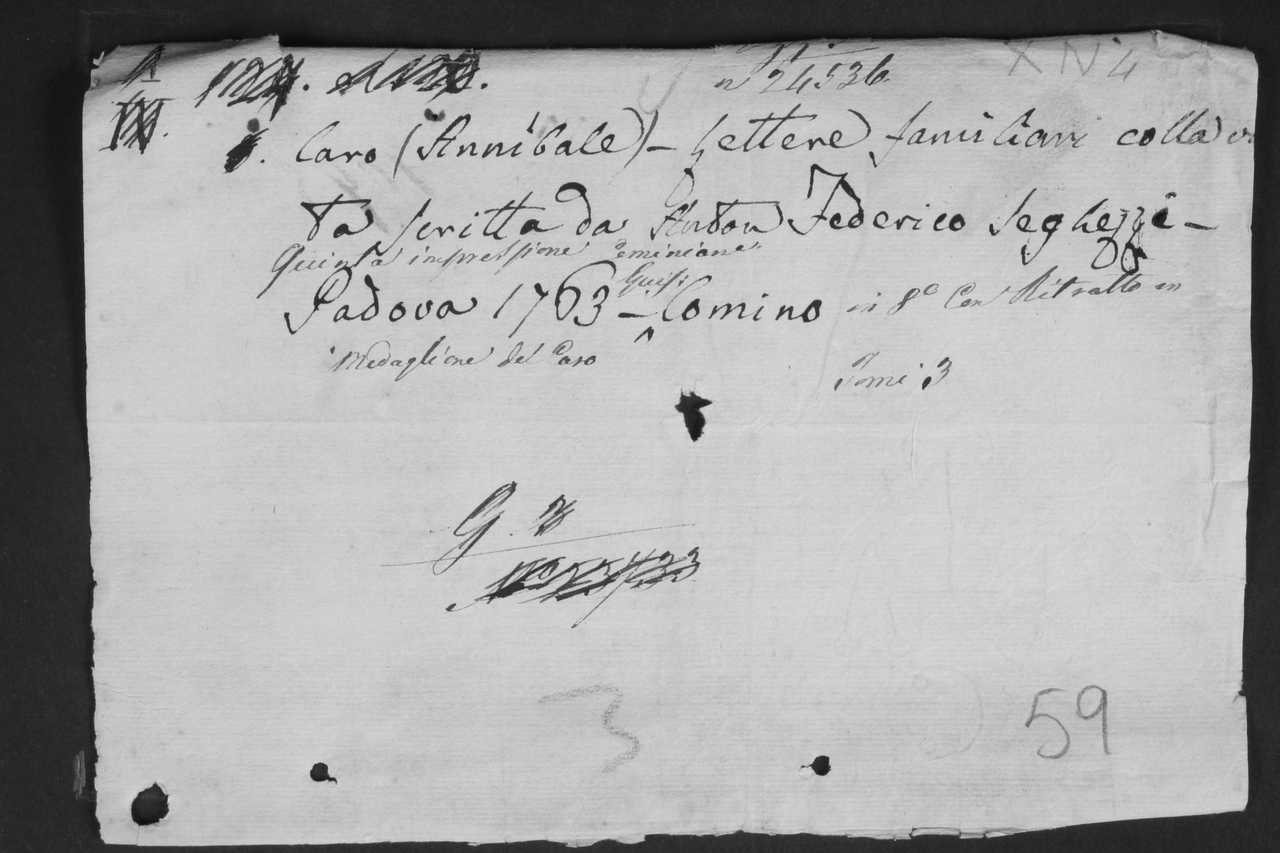 n° 24536
X N 4
Caro (Annibale) – Lettere familiari colla vi
ta scritta da Anton Federico Seghezzi –
Quinta impressione Cominiana
Padova 1763 – Comino in 8° Con Ritratto in
Medaglione del Caro
Tomi 3
G.
3
59